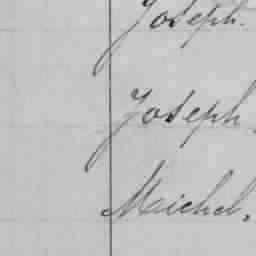 Joseph.
Joseph.
Michel.